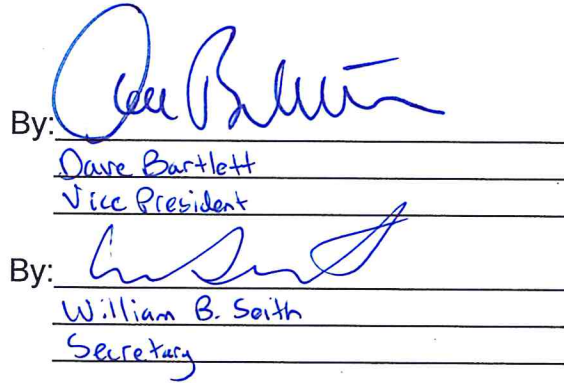 By: Dave Bartlett
Dave Bartlett
Vice President
By:
William B. Seith
Secretary